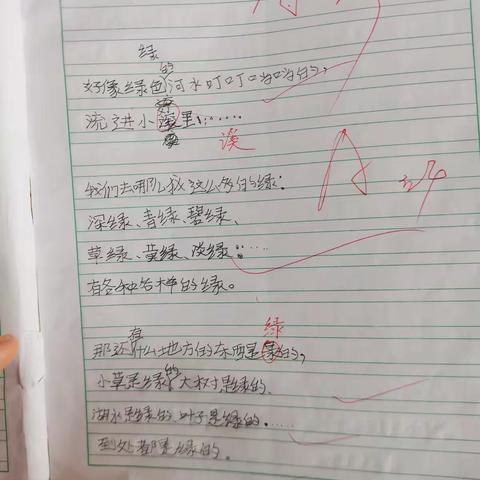 绿
的
好像绿色河水叮叮当当的,
流进小溪里……
溪
我们去哪儿找这么多的绿:
深绿、青绿、碧绿、
草绿、黄绿、淡绿……
有各种各样的绿。
有
绿
那还什么地方的东西是绿的,
的
小草是绿大树是绿的.
湖水是绿的.叶子是绿的……
到处都是绿的.